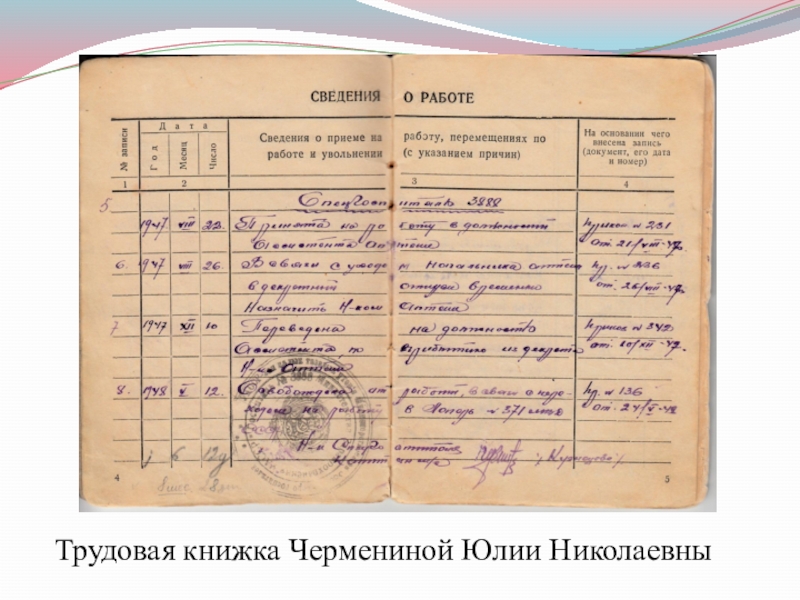 СВЕДЕНИЯ О РАБОТЕ
№ записи
Дата
Год
Месяц
Число
Сведения о приеме на работу, перемещениях по
работе и увольнении (с указанием причин)
На основании чего
внесена запись
(документ, его дата
и номер)
1 2 3 4
5 Спецгоспиталь 3888
1947 VIII 22. Принята на работу в должности Приказ № 231
Ассистента Аптеки от 21/VIII-47.
6. 1947 VIII 26. В связи с уходом начальника аптеки пр. № 236
в декретный отпуск временно от. 26/VIII-47.
Назначить Н-ком Аптеки
7 1947 XII 10 Переведена на должность Приказ № 342
Ассистента, по прибытию из декрета от. 10/XII-47.
Н-ка Аптеки
8. 1948 V 12. Освобождена от работы в связи с пере- пр. № 136
на работу в № 371 от. 24/V-48
Н-к
4
5
Трудовая книжка Чермениной Юлии Николаевны